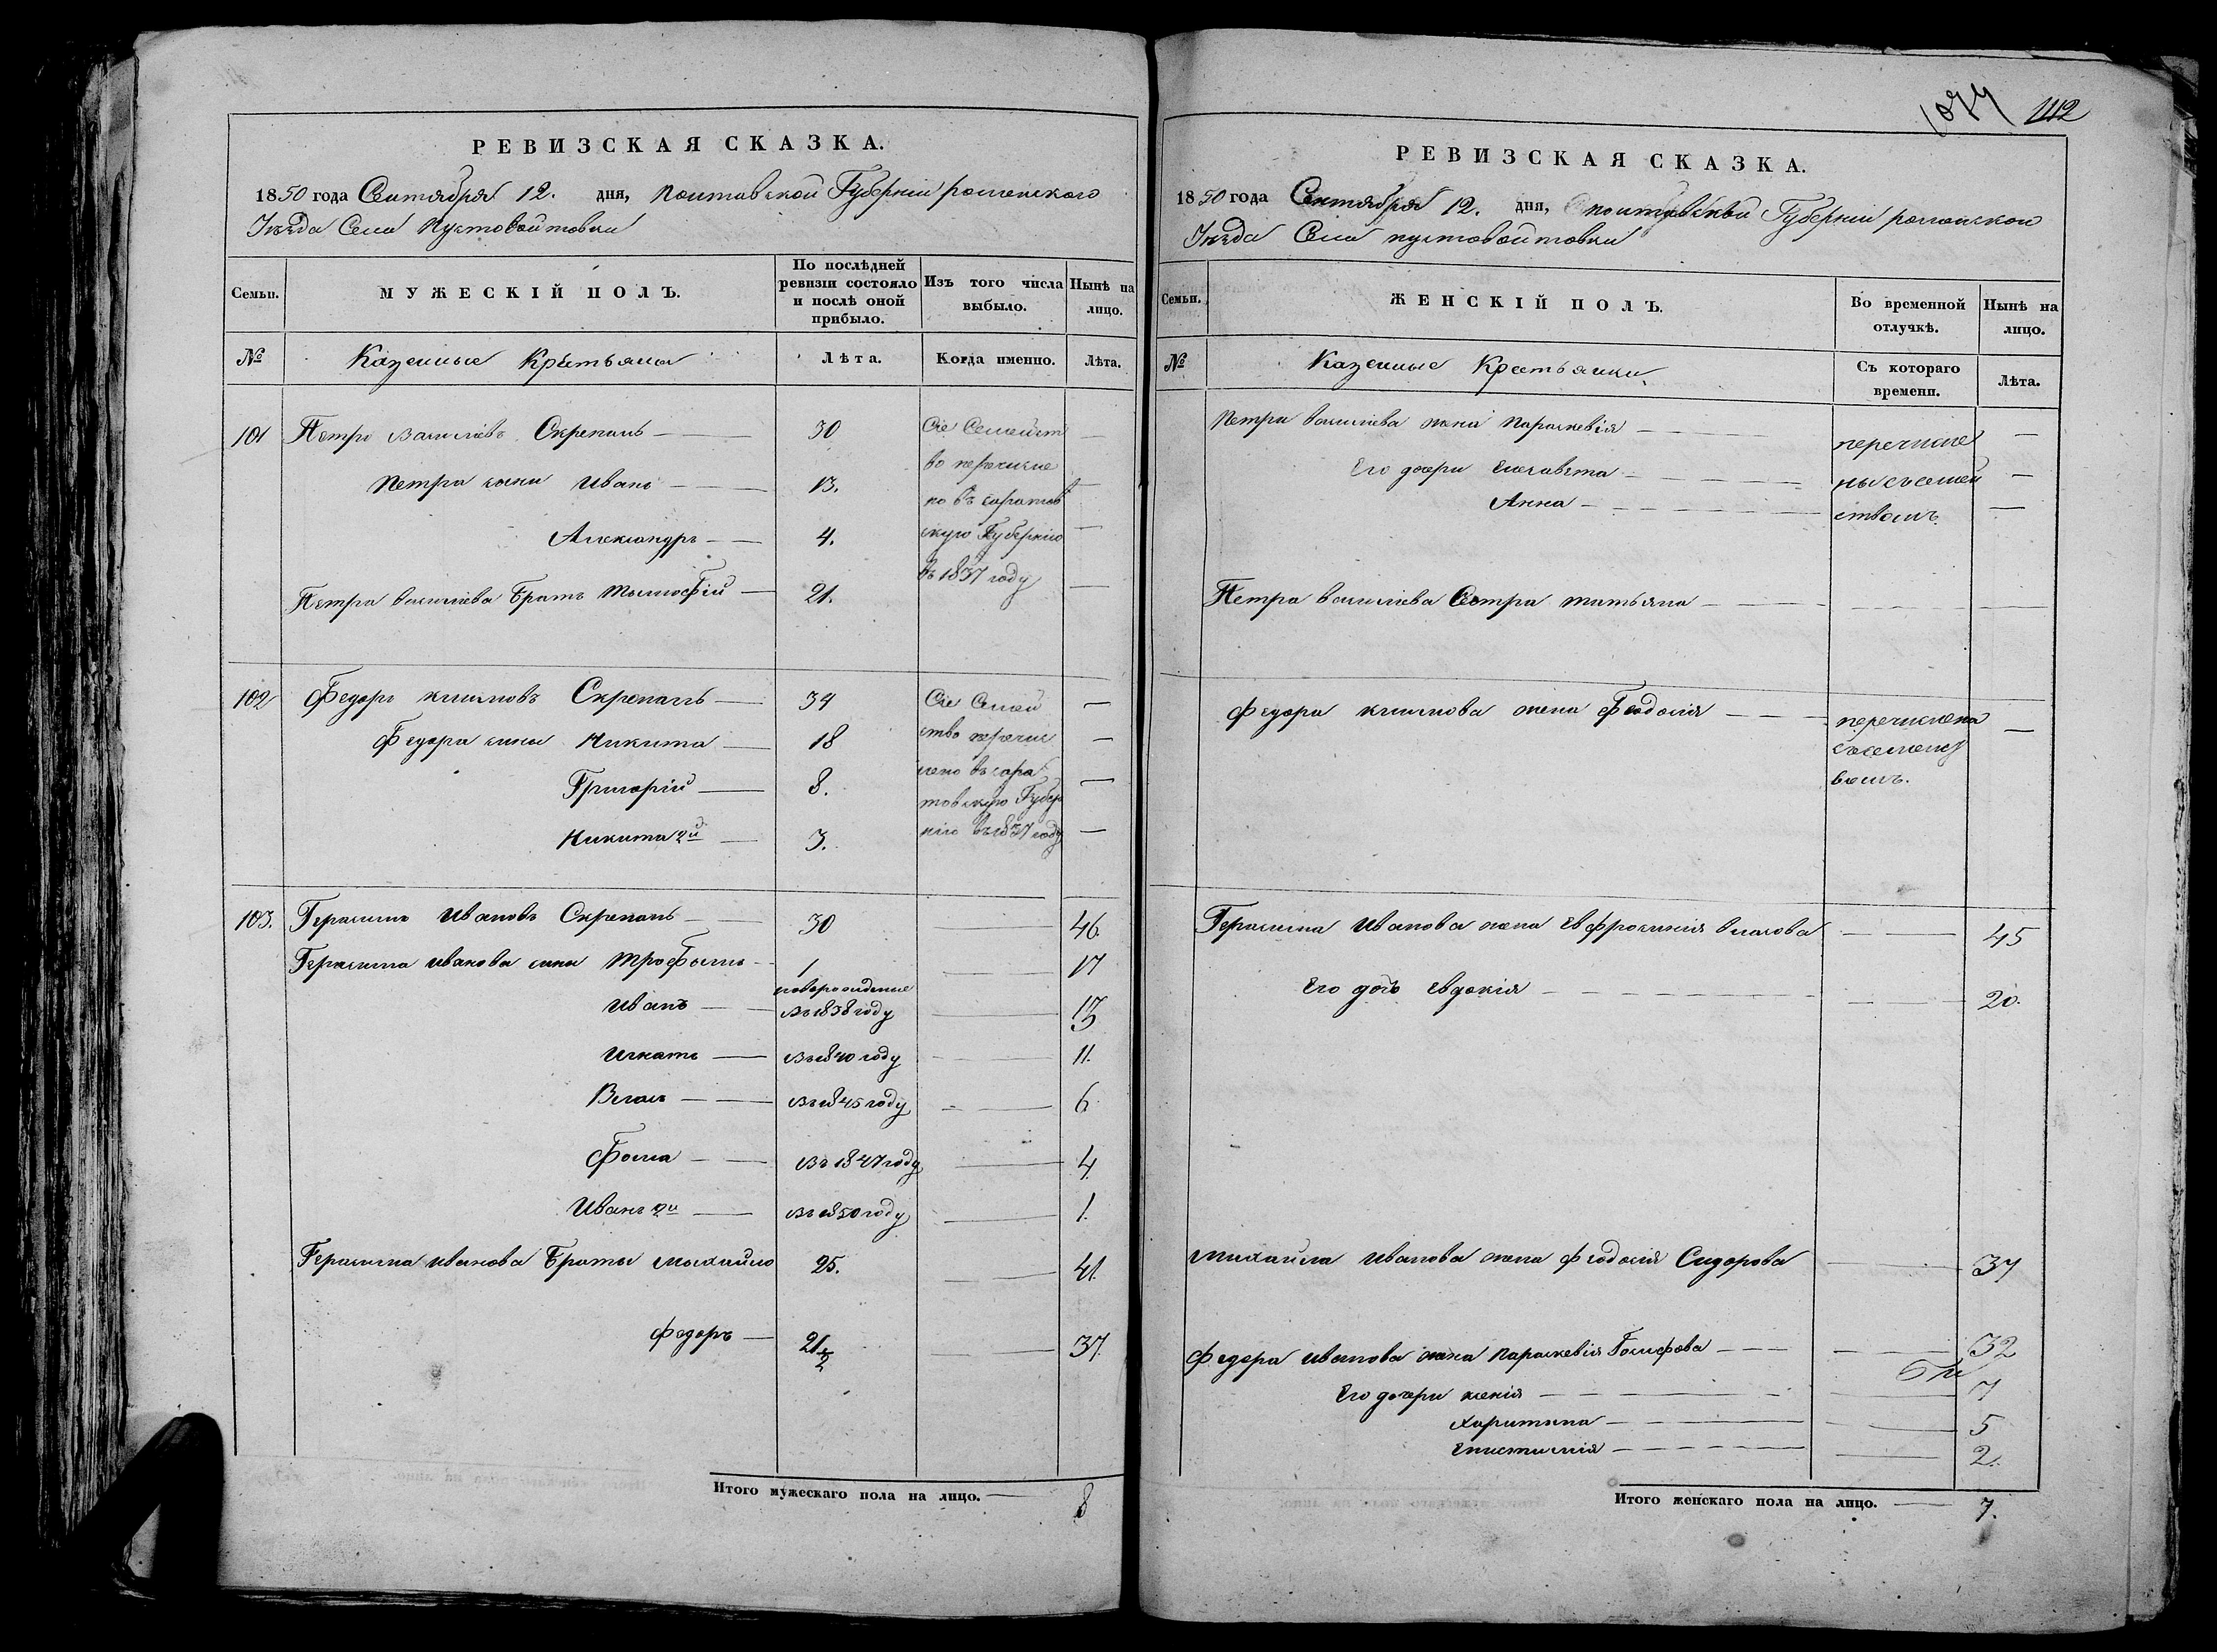 РЕВИЗСКАЯ СКАЗКА.
1850 года Сентября 12. дня, полтавской Губерніи роменского
Уѣзда Села Пустовойтовки
Семьи. МУЖЕСКІЙ ПОЛЪ. По послѣдней ревизіи состояло и послѣ оной прибыло. Изъ того числа выбыло. Нынѣ на лицо.
№ Казенные Крестьяны Лѣта. Когда именно. Лѣта.
101 Петро Васильевъ Скрепаль 30 Сіе Семейст —
во перечисле
Петра сыны Иванъ 13. но въ саратов —
Александръ 4. скую Губернію —
въ 1837 году
Петра васильева Братъ Тымофій 21. —
102 Федоръ климовъ Скрепаль 34 Сіе Семей —
Федора сыны Никита 18 ство перечис —
Григорій 8. лено въ сара —
товскую Губер
Никита 2й 3. нію въ 1837 году —
103. Герасимъ Ивановъ Скрепаль 30 — 46.
Герасима иванова сыны Трофымъ 1 — 17
новорожденые
Иванъ въ 1838 году — 13
Игнатъ въ 1840 году — 11.
Власъ въ 1845 году — 6.
Фома въ 1847 году — 4
Иванъ 2й въ 1850 году — 1.
Герасима иванова Браты Мыхайло 25. — 41.
Федоръ 21 1/2 — 37.
Итого мужескаго пола на лицо. — 8
1074 412
РЕВИЗСКАЯ СКАЗКА.
1850 года Сентября 12. дня, полтавской Губерніи роменской
Уѣзда Села пустовойтовки
Семьи. ЖЕНСКІЙ ПОЛЪ. Во временной отлучкѣ. Нынѣ на лицо.
№ Казенные Крестьянки Съ котораго времени. Лѣта.
Петра васильева жена Параскевія — перечисле —
Его дочери Елисавета — ны съ семей —
Анна — ствомъ —
Петра васильева Сестра татьяна — — —
Федора климова жена Феодосія — перечислена —
съ семейст
вомъ.
Герасима Иванова жена Евфросинія власова — 45
Его дочь Евдокія — 20.
Михайла Иванова жена Феодосія Сидорова — 37
Федора иванова жена параскевія — 32
Его дочери ксенія — 7
Харитина — 5
Епистимія — 2.
Итого женскаго пола на лицо. — 7.